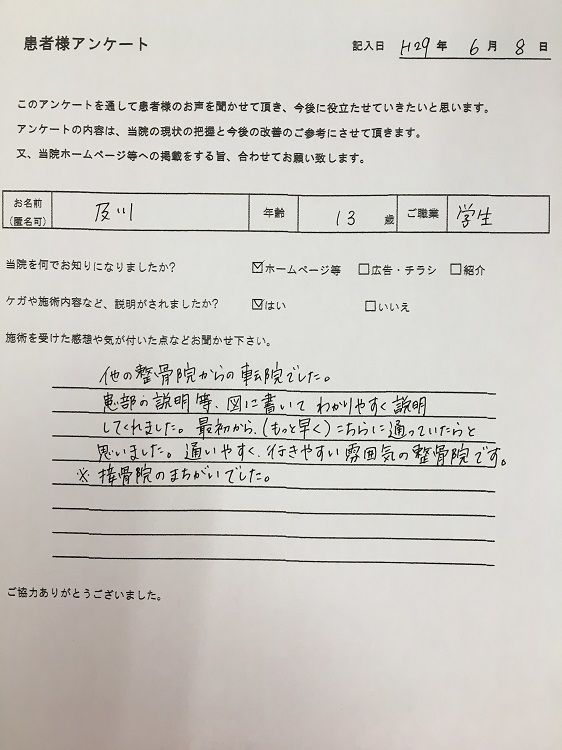 患者様アンケート
記入日 H29年 6月 8日
このアンケートを通して患者様のお声を聞かせて頂き、今後に役立たせていきたいと思います。
アンケートの内容は、当院の現状の把握と今後の改善のご参考にさせて頂きます。
又、当院ホームページ等への掲載をする旨、合わせてお願い致します。
お名前
(匿名可)
及川 年齢 13 歳 ご職業 学生
当院を何でお知りになりましたか? ☑ホームページ等 □広告・チラシ □紹介
ケガや施術内容など、説明がされましたか? ☑はい □いいえ
施術を受けた感想や気が付いた点などお聞かせ下さい。
他の整骨院からの転院でした。
患部の説明等、図に書いて わかりやすく説明
してくれました。最初から、(もっと早く)こちらに通っていたらと
思いました。通いやすく、行きやすい雰囲気の整骨院です。
※接骨院のまちがいでした。
ご協力ありがとうございました。